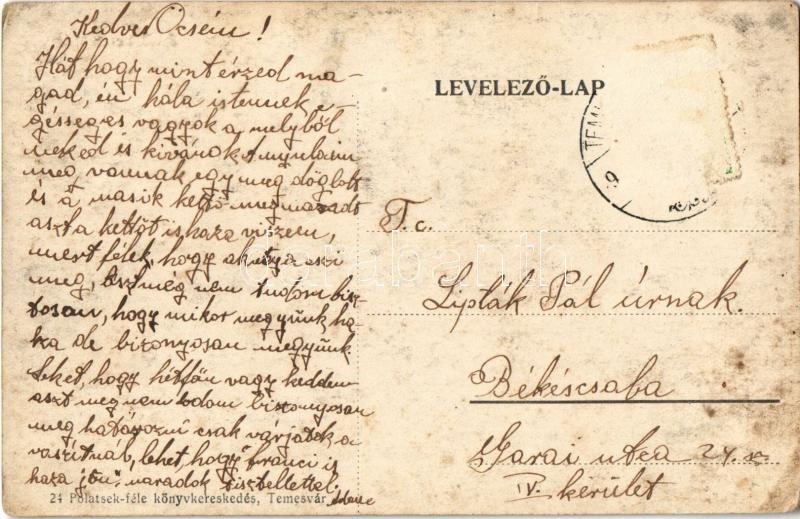 Kedves Öcsém!
Hát hogy mint érzed ma-
gad, én hála istennek e-
gésséges vagyok a melyből
neked is kivánok. A nyulaim
meg vannak egy meg döglött
és a másik kettő megmaradt
aszt a kettőt is haza viszem,
mert félek, hogy a kutya eszi
meg, eszt még nem tudom bisz-
tosan, hogy mikor megyünk ha-
za de bizonyosan megyünk.
Lehet, hogy hétfőn vagy kedden
aszt meg nem todom bizonyosan
meg határozni csak várjatok a
vaszútnál, lehet, hogy Franci is
haza jön. maradok tisztellettel.
24 Polatsek-féle könyvkereskedés, Temesvár
LEVELEZŐ-LAP
TEM
T. c.
Lipták Pál úrnak.
Békéscsaba
Garai utca 24. sz
IV. kerület
darabanth